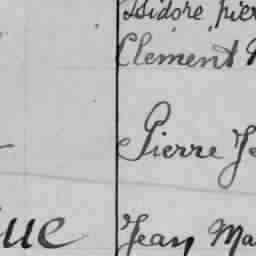 Isidore, pier
Clement
Pierre Je
ue Jean Ma